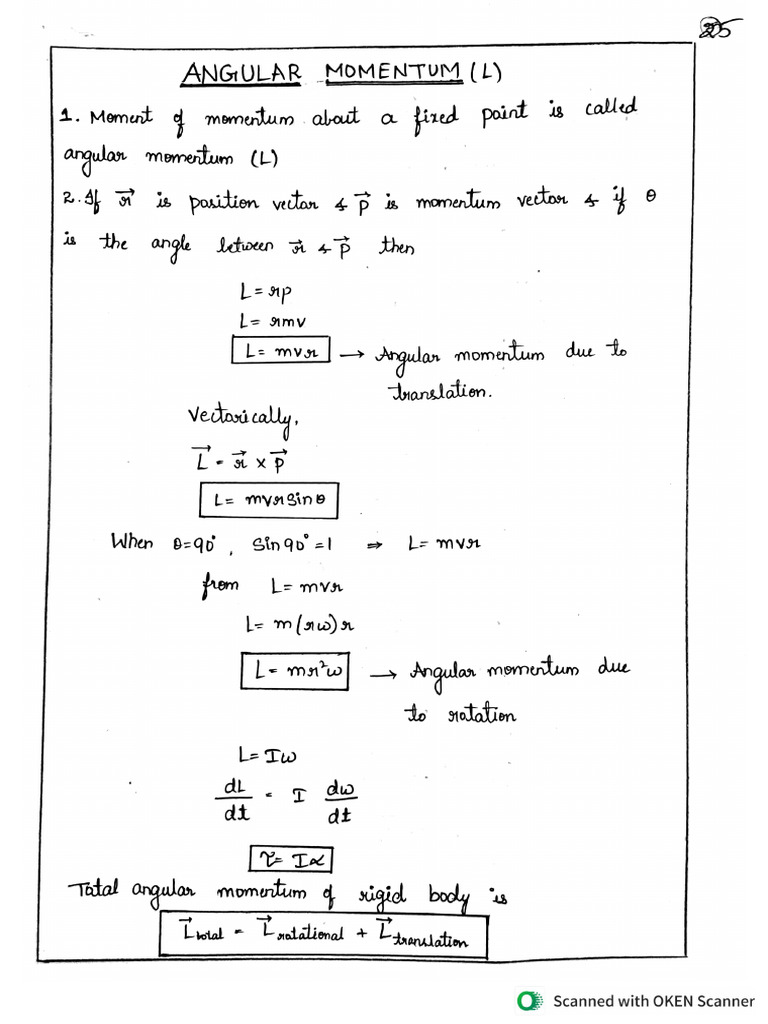 205
ANGULAR MOMENTUM (L)
1. Moment of momentum about a fixed point is called
angular momentum (L)
2. If r⃗ is position vector & p⃗ is momentum vector & if θ
is the angle between r⃗ & p⃗ then
L = rp
L = rmv
L = mvr → Angular momentum due to
translation.
Vectorically,
L⃗ = r⃗ × p⃗
L = mvr sin θ
When θ=90°, Sin 90° = 1 ⇒ L = mvr
from L = mvr
L = m(rω)r
L = mr²ω → Angular momentum due
to rotation
L = Iω
dL/dt = I dω/dt
τ = Iα
Total angular momentum of rigid body is
L⃗total = L⃗rotational + L⃗translation
Scanned with OKEN Scanner